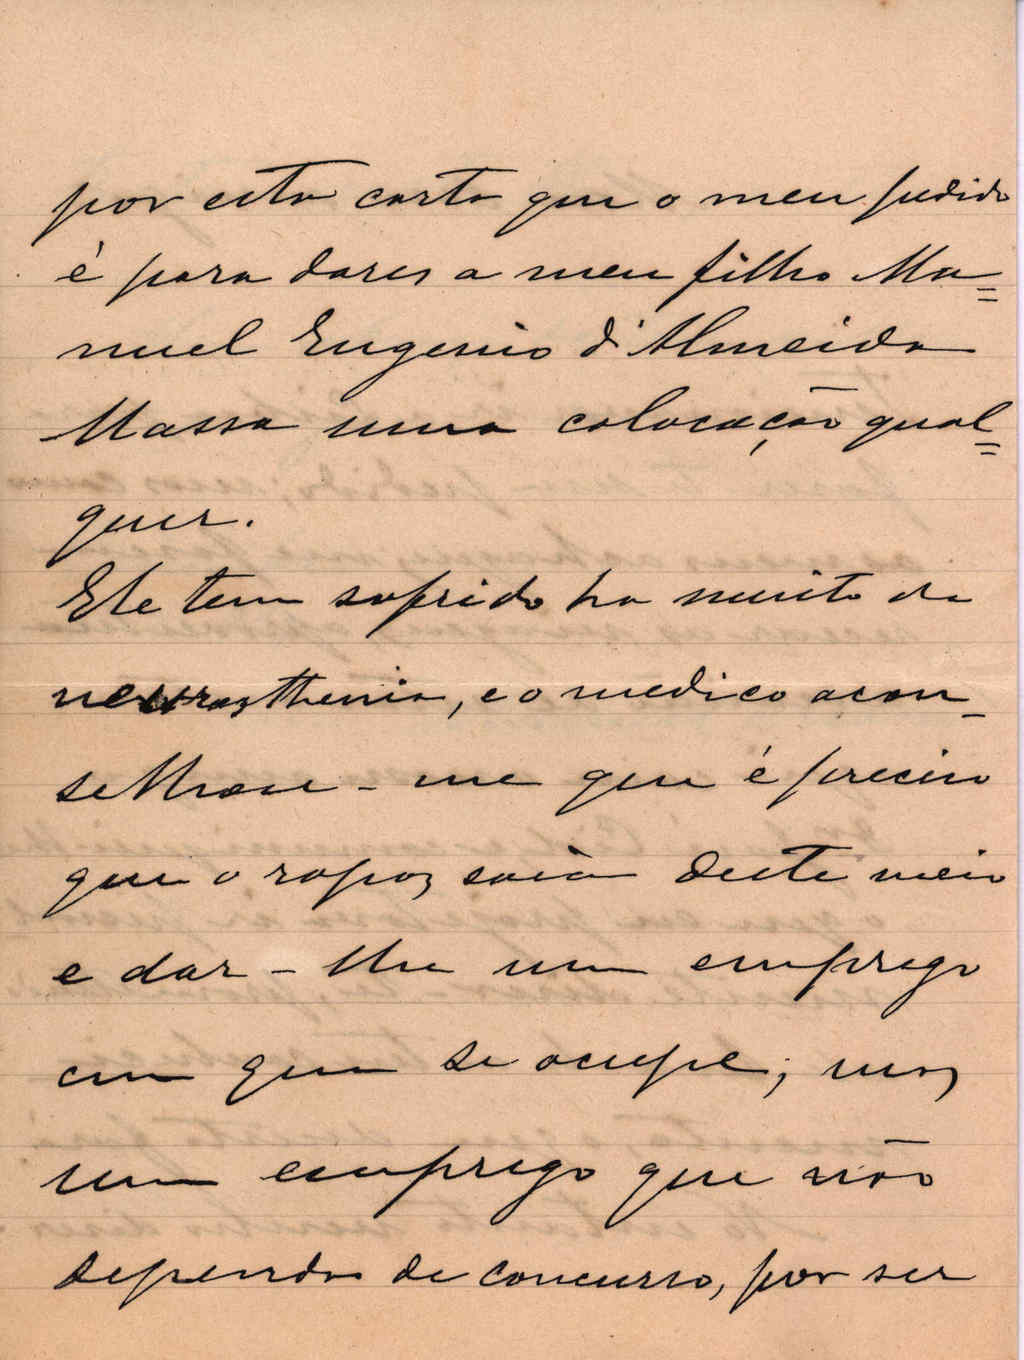 por esta carta que o meu pedido
é para dares a meu filho Ma=
nuel Eugenio d'Almeida
Massa uma colocação qual=
quer.
Ele tem sofrido ha muito da
neurasthenia, e o medico acon-
selhou-me que é preciso
que o rapaz saia deste meio
e dar-lhe um emprego
em que se ocupe; mas
um emprego que não
dependa de concurso, por ser